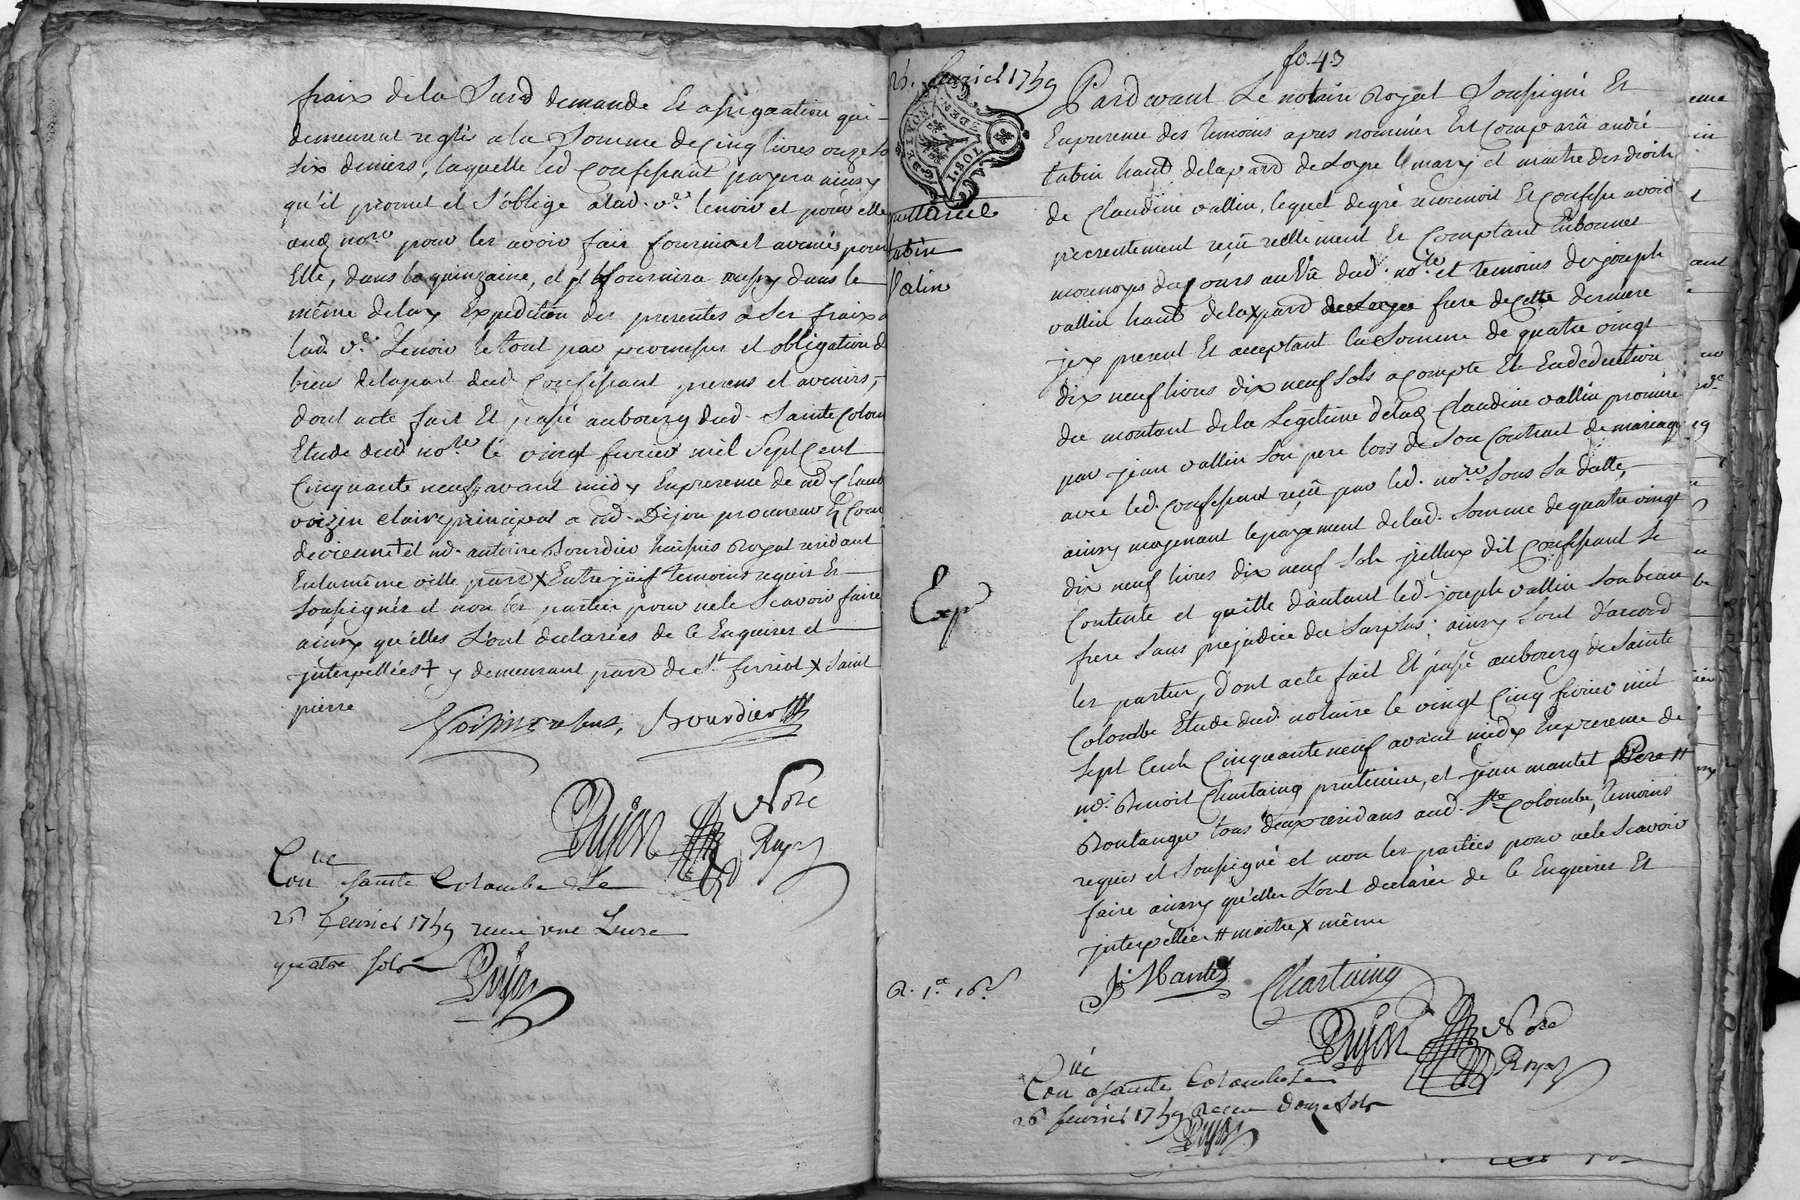 fraix de la Susd demande et assignation qui
demeurent reglés a la Somme de Cinq livres onze
Six deniers, laquelle led Confessant payera ainsy
qu'il promet et S'oblige a lad. ve. Lenoir et pour elle
aud nore pour les avoir fait fournir et avancés pour
Elle, dans la quinzaine, et fournira aussy dans le
même delay Expedition des presentes a Ses fraix a
lad. ve. Lenoir le tout par promesses et obligation de
biens de la part dud Confessant presens et avenirs,
dont acte fait Et passé au bourg dud. Sainte Colom
Etude dud nore le vingt fevrier mil Sept Cent
Cinquante neuf avant midy En presence de md Claude
voizin Clair principal a md. Dijon procureur Es Cour
de vienne + et md. antoine Bourdier huissier Royal residant
En la même ville parr x Entre juif temoins requis Et
Soussignés et non les parties pour ne le Scavoir faire
ainsy qu'elles L'ont declarées de ce Enquises et
interpellées + y demeurant parr de St ferreol x Saint
pierre
Bourdier
Dujon Nore
Royal
Conlle a Sainte Colombe Le
26 fevrier 1759 receu une Livre
quatre Sols
Dujon
fo. 43
25. fevrier 1759
quittance
tabin
Valin
Exp
Pardevant Le notaire Royal Soussigné Et
En presence des temoins apres nommés Est Comparû andré
tabin habt de la parr de Loyre mary et maitre des droits
de Claudine vallin, lequel de gré reconnoit Et Confesse avoir
presentement reçû reellement Et Comptant En bonnes
monnoyes de Cours au Vû dud. nore et temoins de joseph
vallin habt de la x parr de Loyre frere de Cette derniere
jcy present Et acceptant la Somme de quatre vingt
dix neuf livres dix neuf Sols a compte Et En deduction
du montant de la Legitime de lad Claudine vallin promise
par jean vallin Son pere lors de Son Contrat de mariage
avec led. Confessant reçû par led. nore Sous Sa datte,
ainsy moyenant le payement de lad. Somme de quatre vingt
dix neuf livres dix neuf Sols jcelluy dit Confessant Se
Contente et quitte d'autant led. joseph vallin Son beau
frere Sans prejudice du Surplus; ainsy Sont d'accord
les parties, dont acte fait Et passé au bourg de Sainte
Colombe Etude dud. notaire le vingt Cinq fevrier mil
Sept Cent Cinquante neuf avant midy En presence de
md. Benoit Chartaing praticien, et jean mantet Pere #
Boulanger tous deux residans aud. Ste Colombe, temoins
requis et Soussigné et non les parties pour ne le Scavoir
faire ainsy qu'elles L'ont declarées de ce Enquises Et
interpellées # maitre x même
J: Mantet Chartaing
Dujon Nore
Royal
Conlle a Sainte Colombe Le
26 fevrier 1759 Receu douze Sols
Dujon